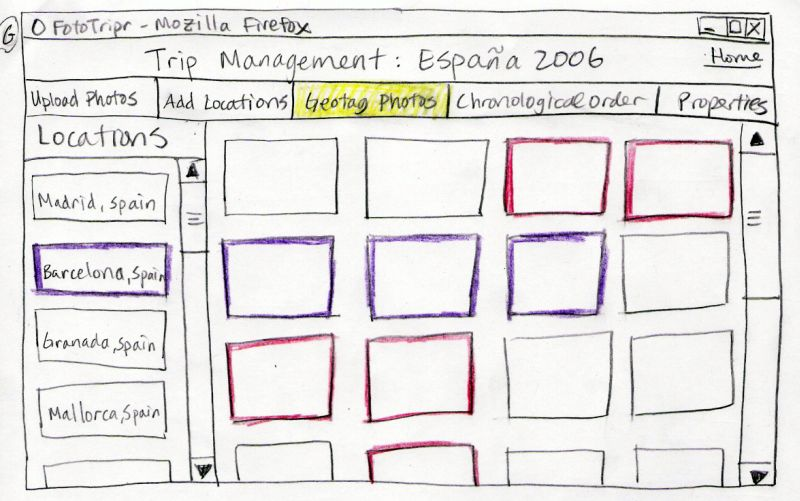 G
FotoTripr - Mozilla Firefox
Trip Management: España 2006
Home
Upload Photos
Add Locations
Geotag Photos
Chronological order
Properties
Locations
Madrid, Spain
Barcelona, Spain
Granada, Spain
Mallorca, Spain